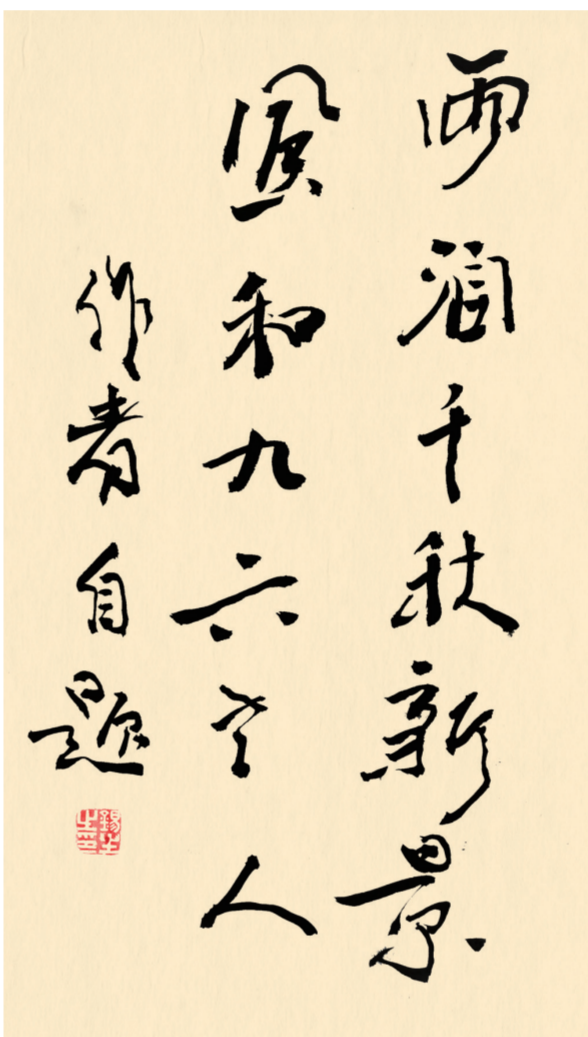 雨润千秋新景
風和九六老人
作者自题